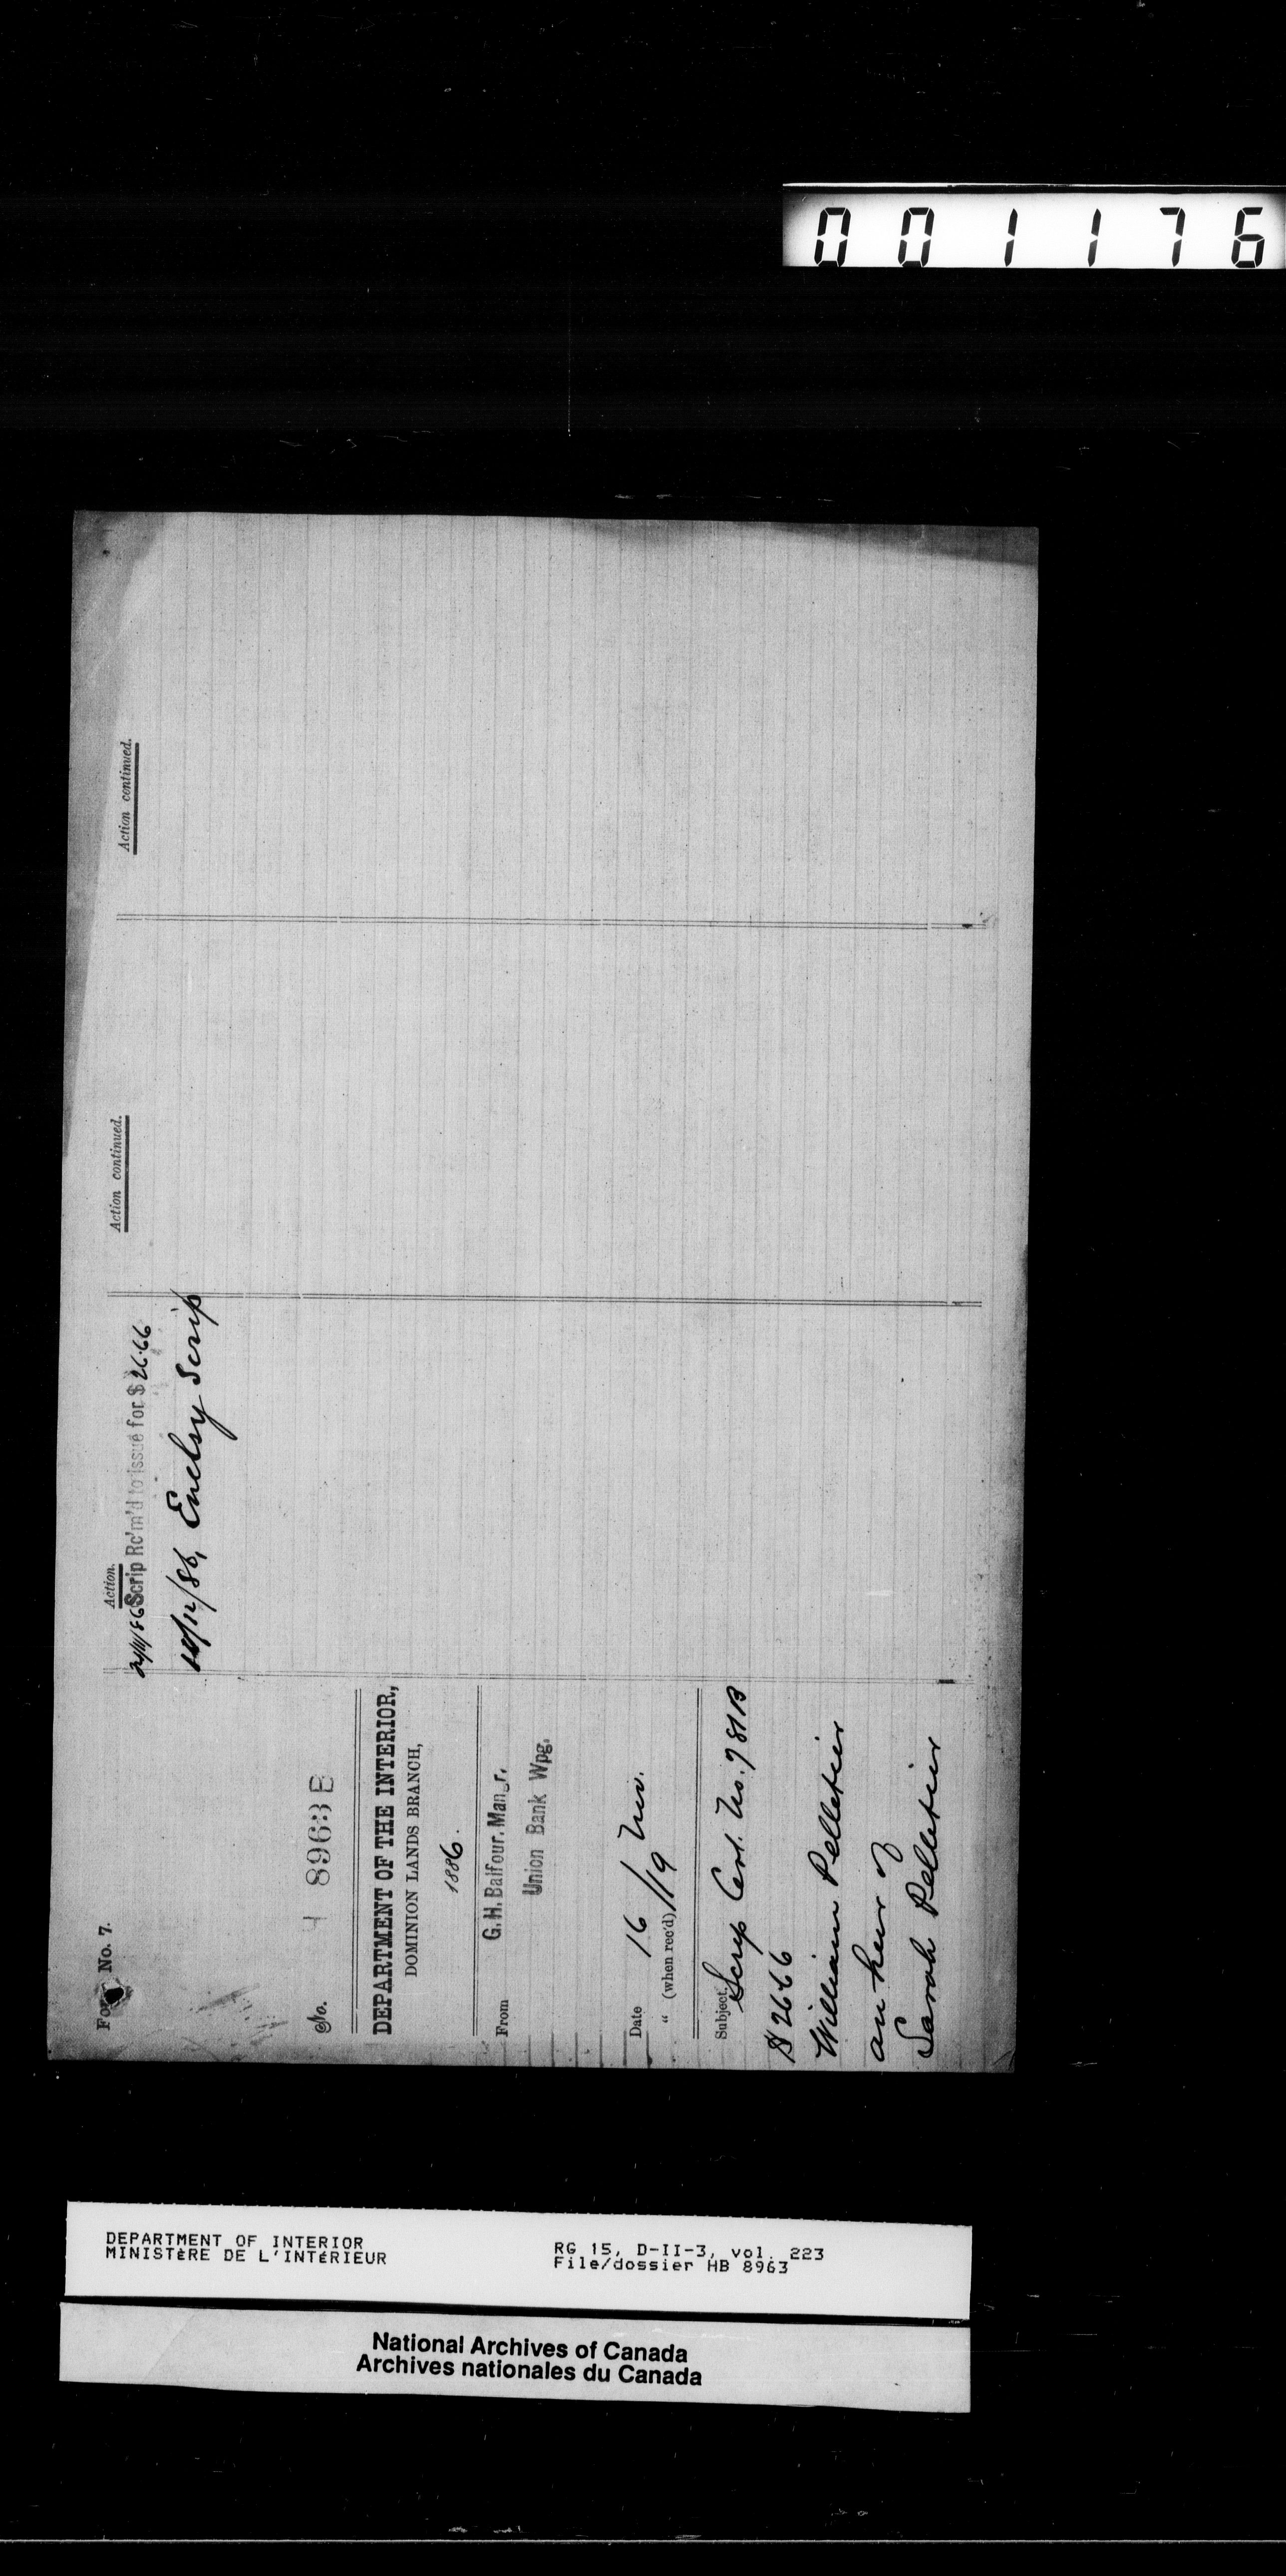 001176
Form No. 7.
No. 8963 B
DEPARTMENT OF THE INTERIOR,
DOMINION LANDS BRANCH,
1886.
From G. H. Balfour. Mangr.
Union Bank Wpg.
Date 16 / Nov.
" (when rec'd) /19
Subject. Scrip Cert. No. 781B
$26.66
William Pelletier
an heir of
Sarah Pelletier
Action.
Scrip Rc'm'd to issue for $26.66
/12/86, Enclsg Scrip
Action continued.
Action continued.
DEPARTMENT OF INTERIOR
MINISTèRE DE L'INTéRIEUR
RG 15, D-II-3, vol. 223
File/dossier HB 8963
National Archives of Canada
Archives nationales du Canada